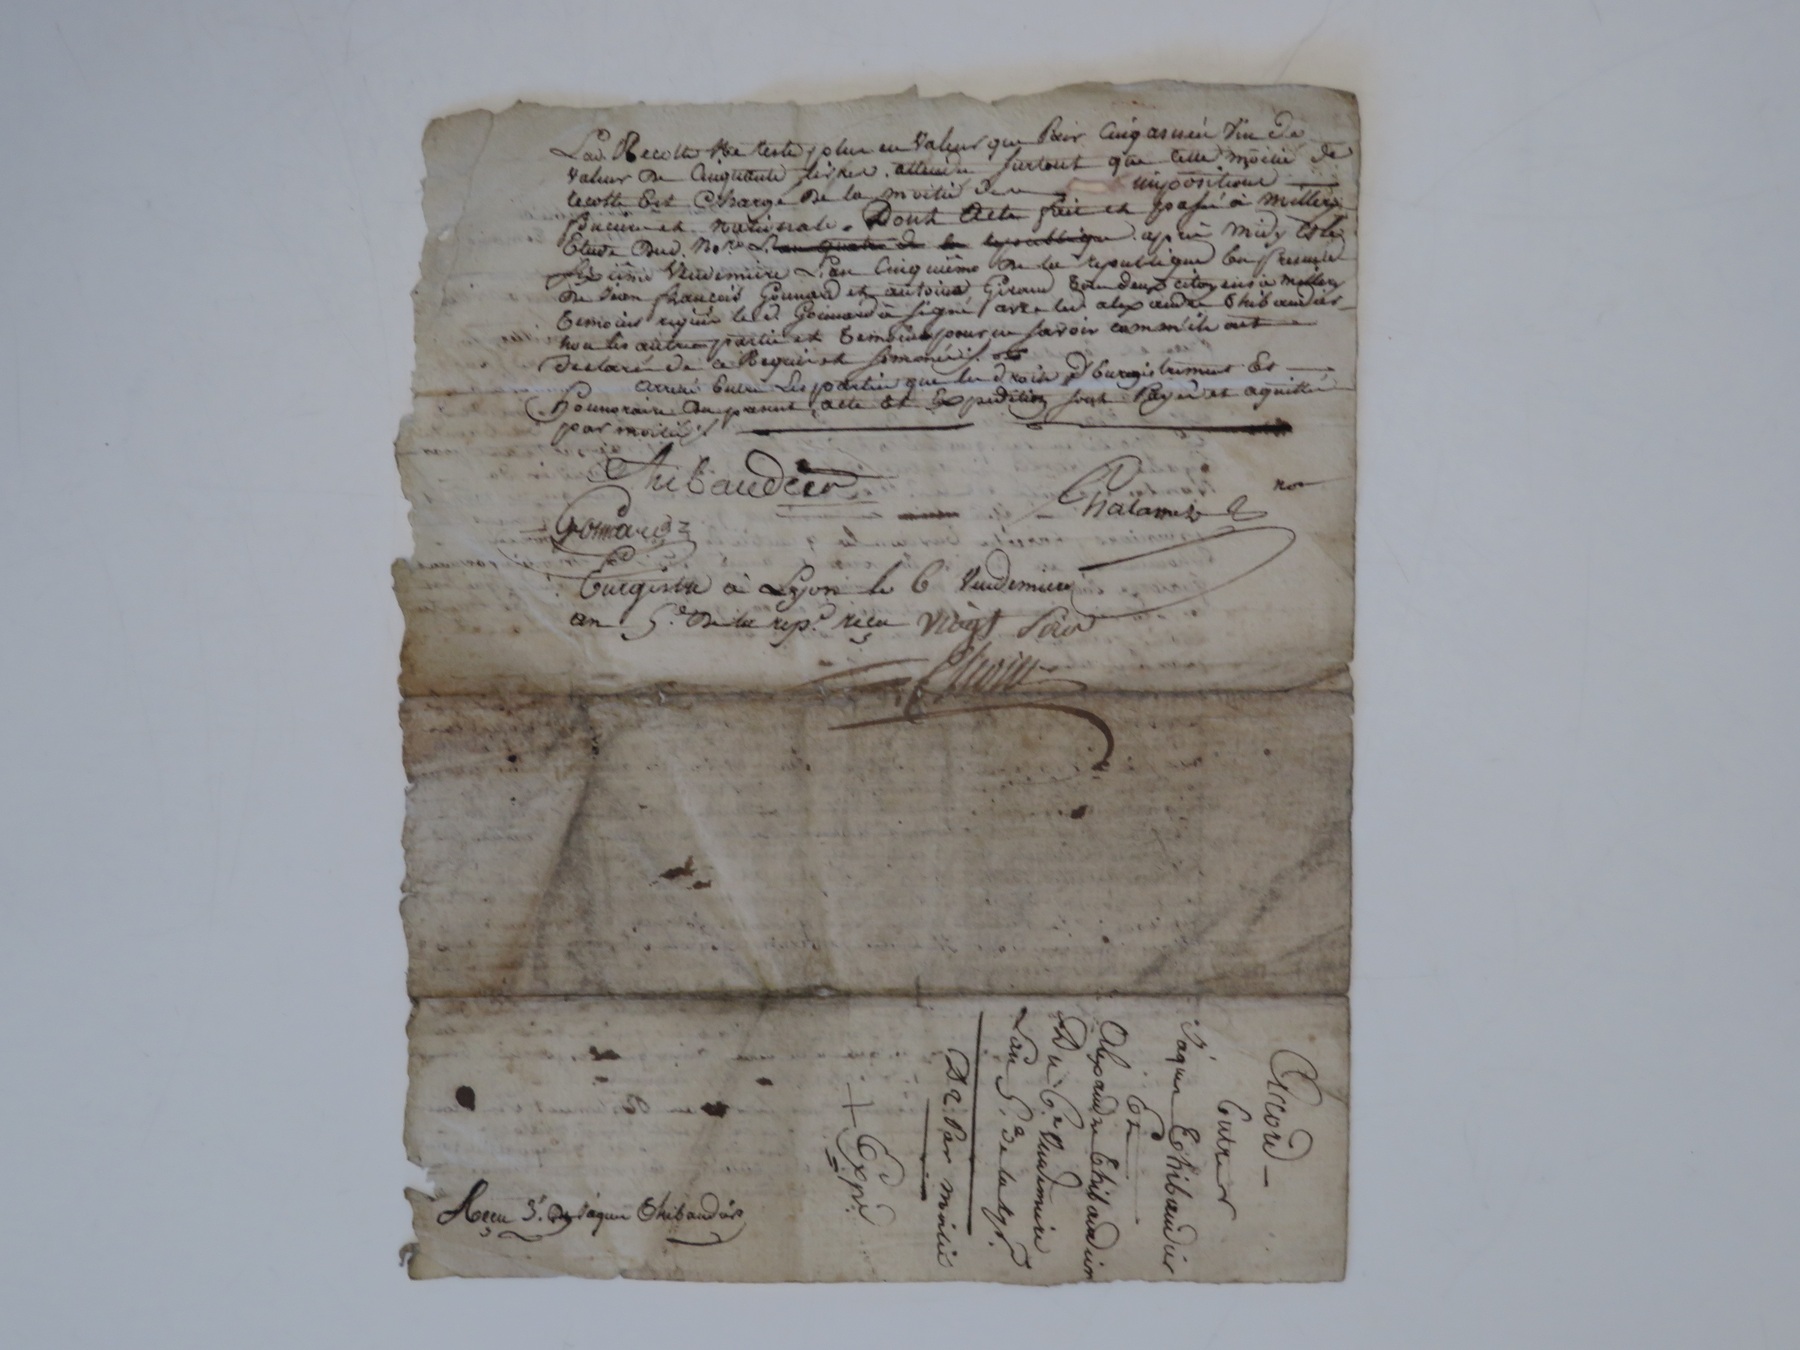 Lad. Recolte Ne teste plus en Valeur que Pair Cinq asnéé Vin de
Valeur de Cinquante livres. attendu surtout que cette moitié de
recolte Est Chargé de la moitié des impositions
fonciere et nationale. Dont Acte fait et passé à Millery
Etude Dud. No.re L'an quatre de la republique apres midy Le
Sixieme Vendemiere L'an Cinquieme De la republique En presence
De Jean françois Gonnard et antoine Giraud tous deux citoyens à Millery
temoins requis led. Gonnard à signé avec led. alexandre Thibaudier
non les autres parties et temoins pour ne savoir comm'ils ont
declaré de ce Requis et sommés.
arreté Entre Les parties que les droits d'Enregistrement Et
Honnoraire du present acte et Expedition sont Payés et aquittés
par moitié.
Thibaudier
Chatamez no.re
Gonnard
Enregistré à Lyon le 6 Vendemiere
an 5.e De la rep.e reçu vingt sous
Accord
Entre
Jaques Thibaudier
Et
Alexandre Thibaudier
Du 6.e Vendemiere
L'an 5.e De la rep.
D2. Par moitié
+ Exp.e
Recu 3. De Jaques Thibaudier